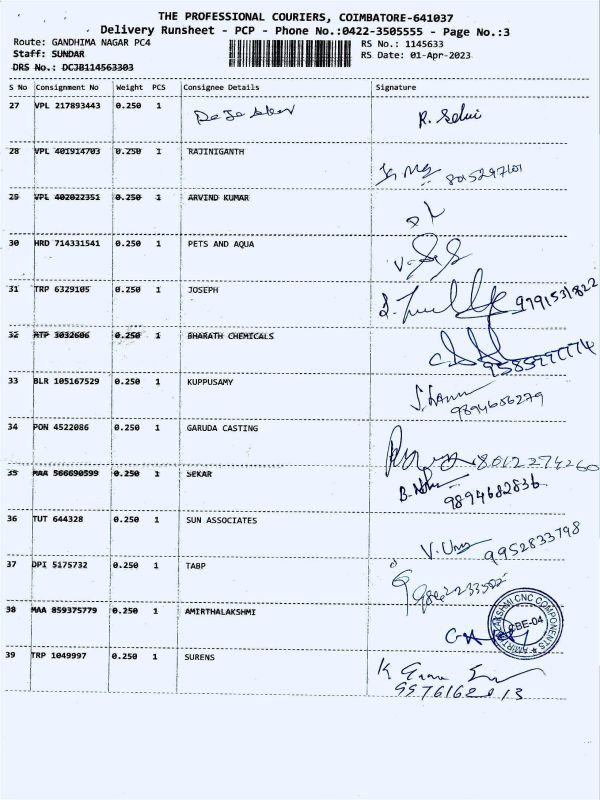 THE PROFESSIONAL COURIERS, COIMBATORE-641037
Delivery Runsheet - PCP - Phone No.:0422-3505555 - Page No.:3
Route: GANDHIMA NAGAR PC4 RS No.: 1145633
Staff: SUNDAR RS Date: 01-Apr-2023
DRS No.: DCJB114563303
S No Consignment No Weight PCS Consignee Details Signature
27 VPL 217893443 0.250 1 R. Selvi
28 VPL 401914703 0.250 1 RAJINIGANTH 8015297101
29 VPL 402022351 0.250 1 ARVIND KUMAR
30 HRD 714331541 0.250 1 PETS AND AQUA
31 TRP 6329105 0.250 1 JOSEPH 9791531822
32 RTP 3032606 0.250 1 BHARATH CHEMICALS
33 BLR 105167529 0.250 1 KUPPUSAMY 9894656279
34 PON 4522086 0.250 1 GARUDA CASTING 8012274260
35 MAA 566690599 0.250 1 SEKAR 9894682836
36 TUT 644328 0.250 1 SUN ASSOCIATES 9952833798
37 DPI 5175732 0.250 1 TABP
38 MAA 859375779 0.250 1 AMIRTHALAKSHMI CBE-04
39 TRP 1049997 0.250 1 SURENS